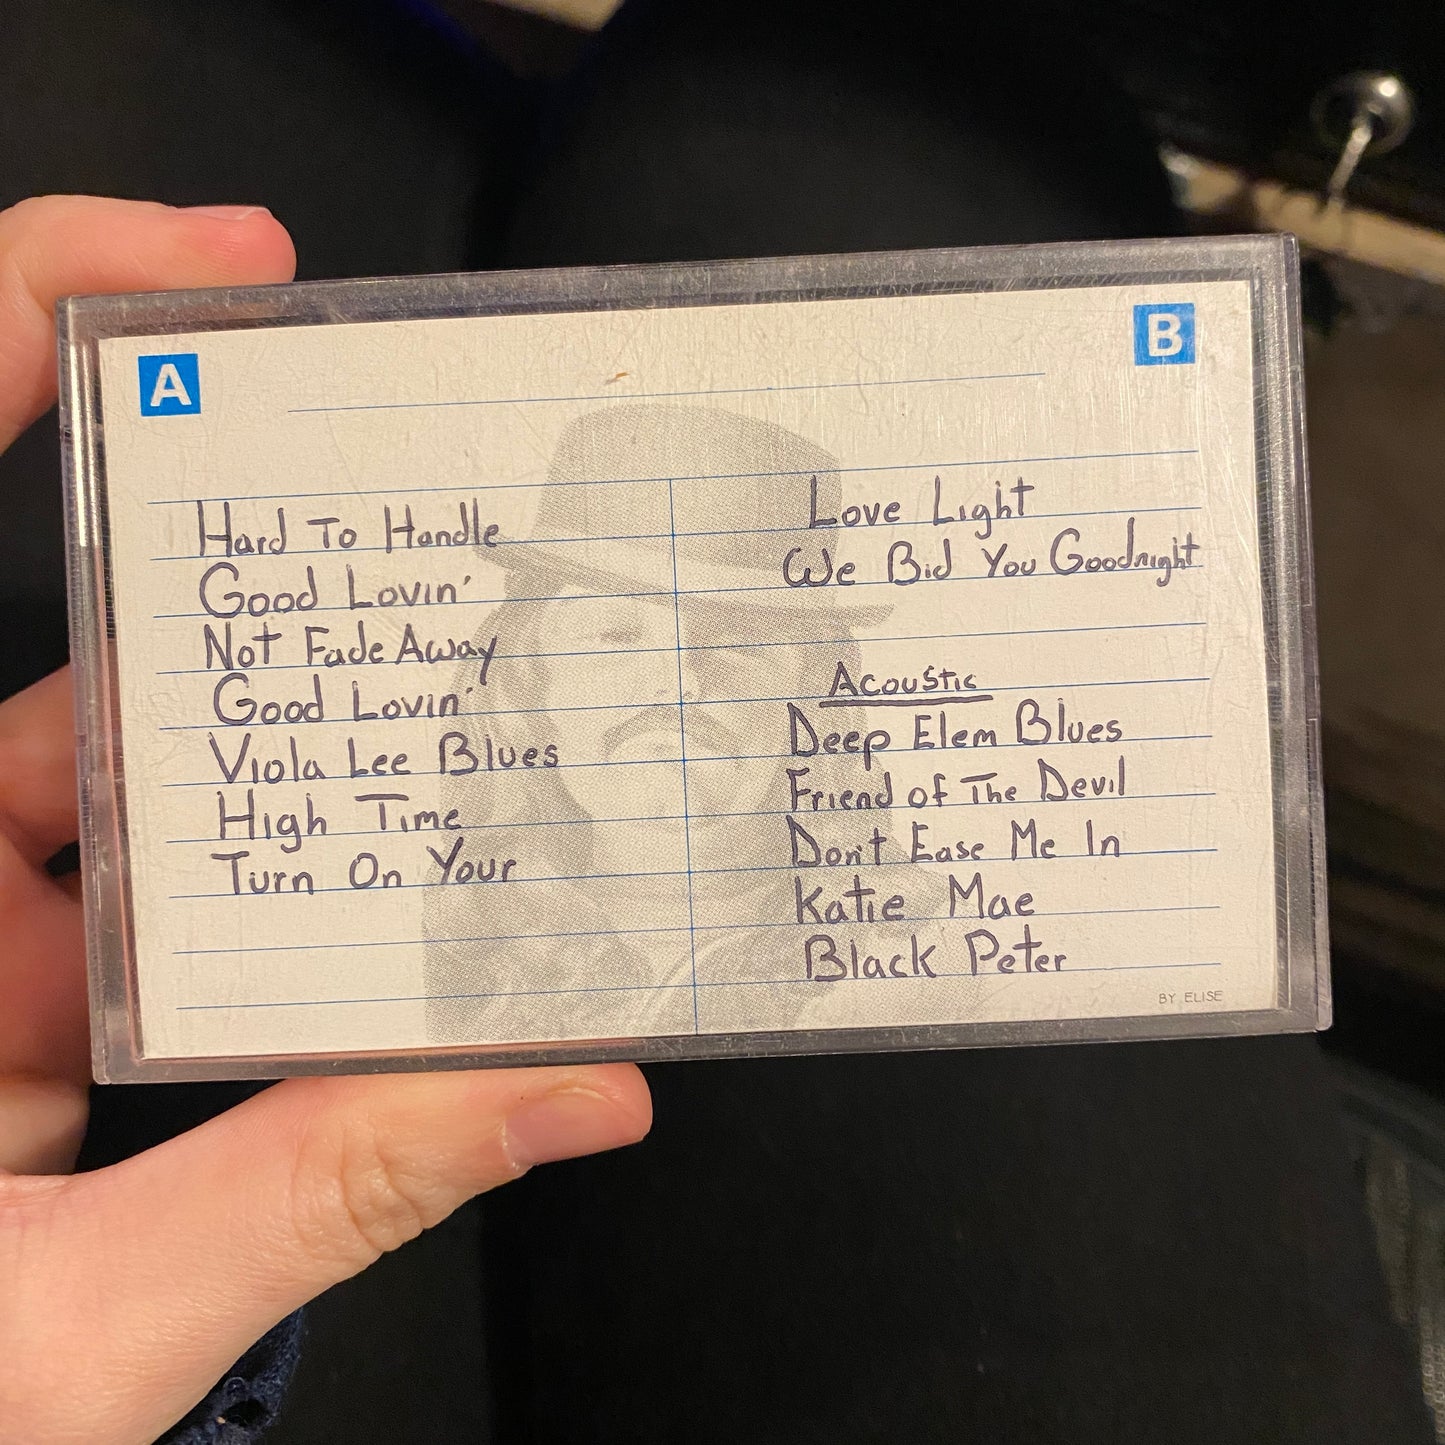 A
B
Hard To Handle
Good Lovin'
Not Fade Away
Good Lovin'
Viola Lee Blues
High Time
Turn On Your
Love Light
We Bid You Goodnight
Acoustic
Deep Elem Blues
Friend of The Devil
Don't Ease Me In
Katie Mae
Black Peter
BY ELISE